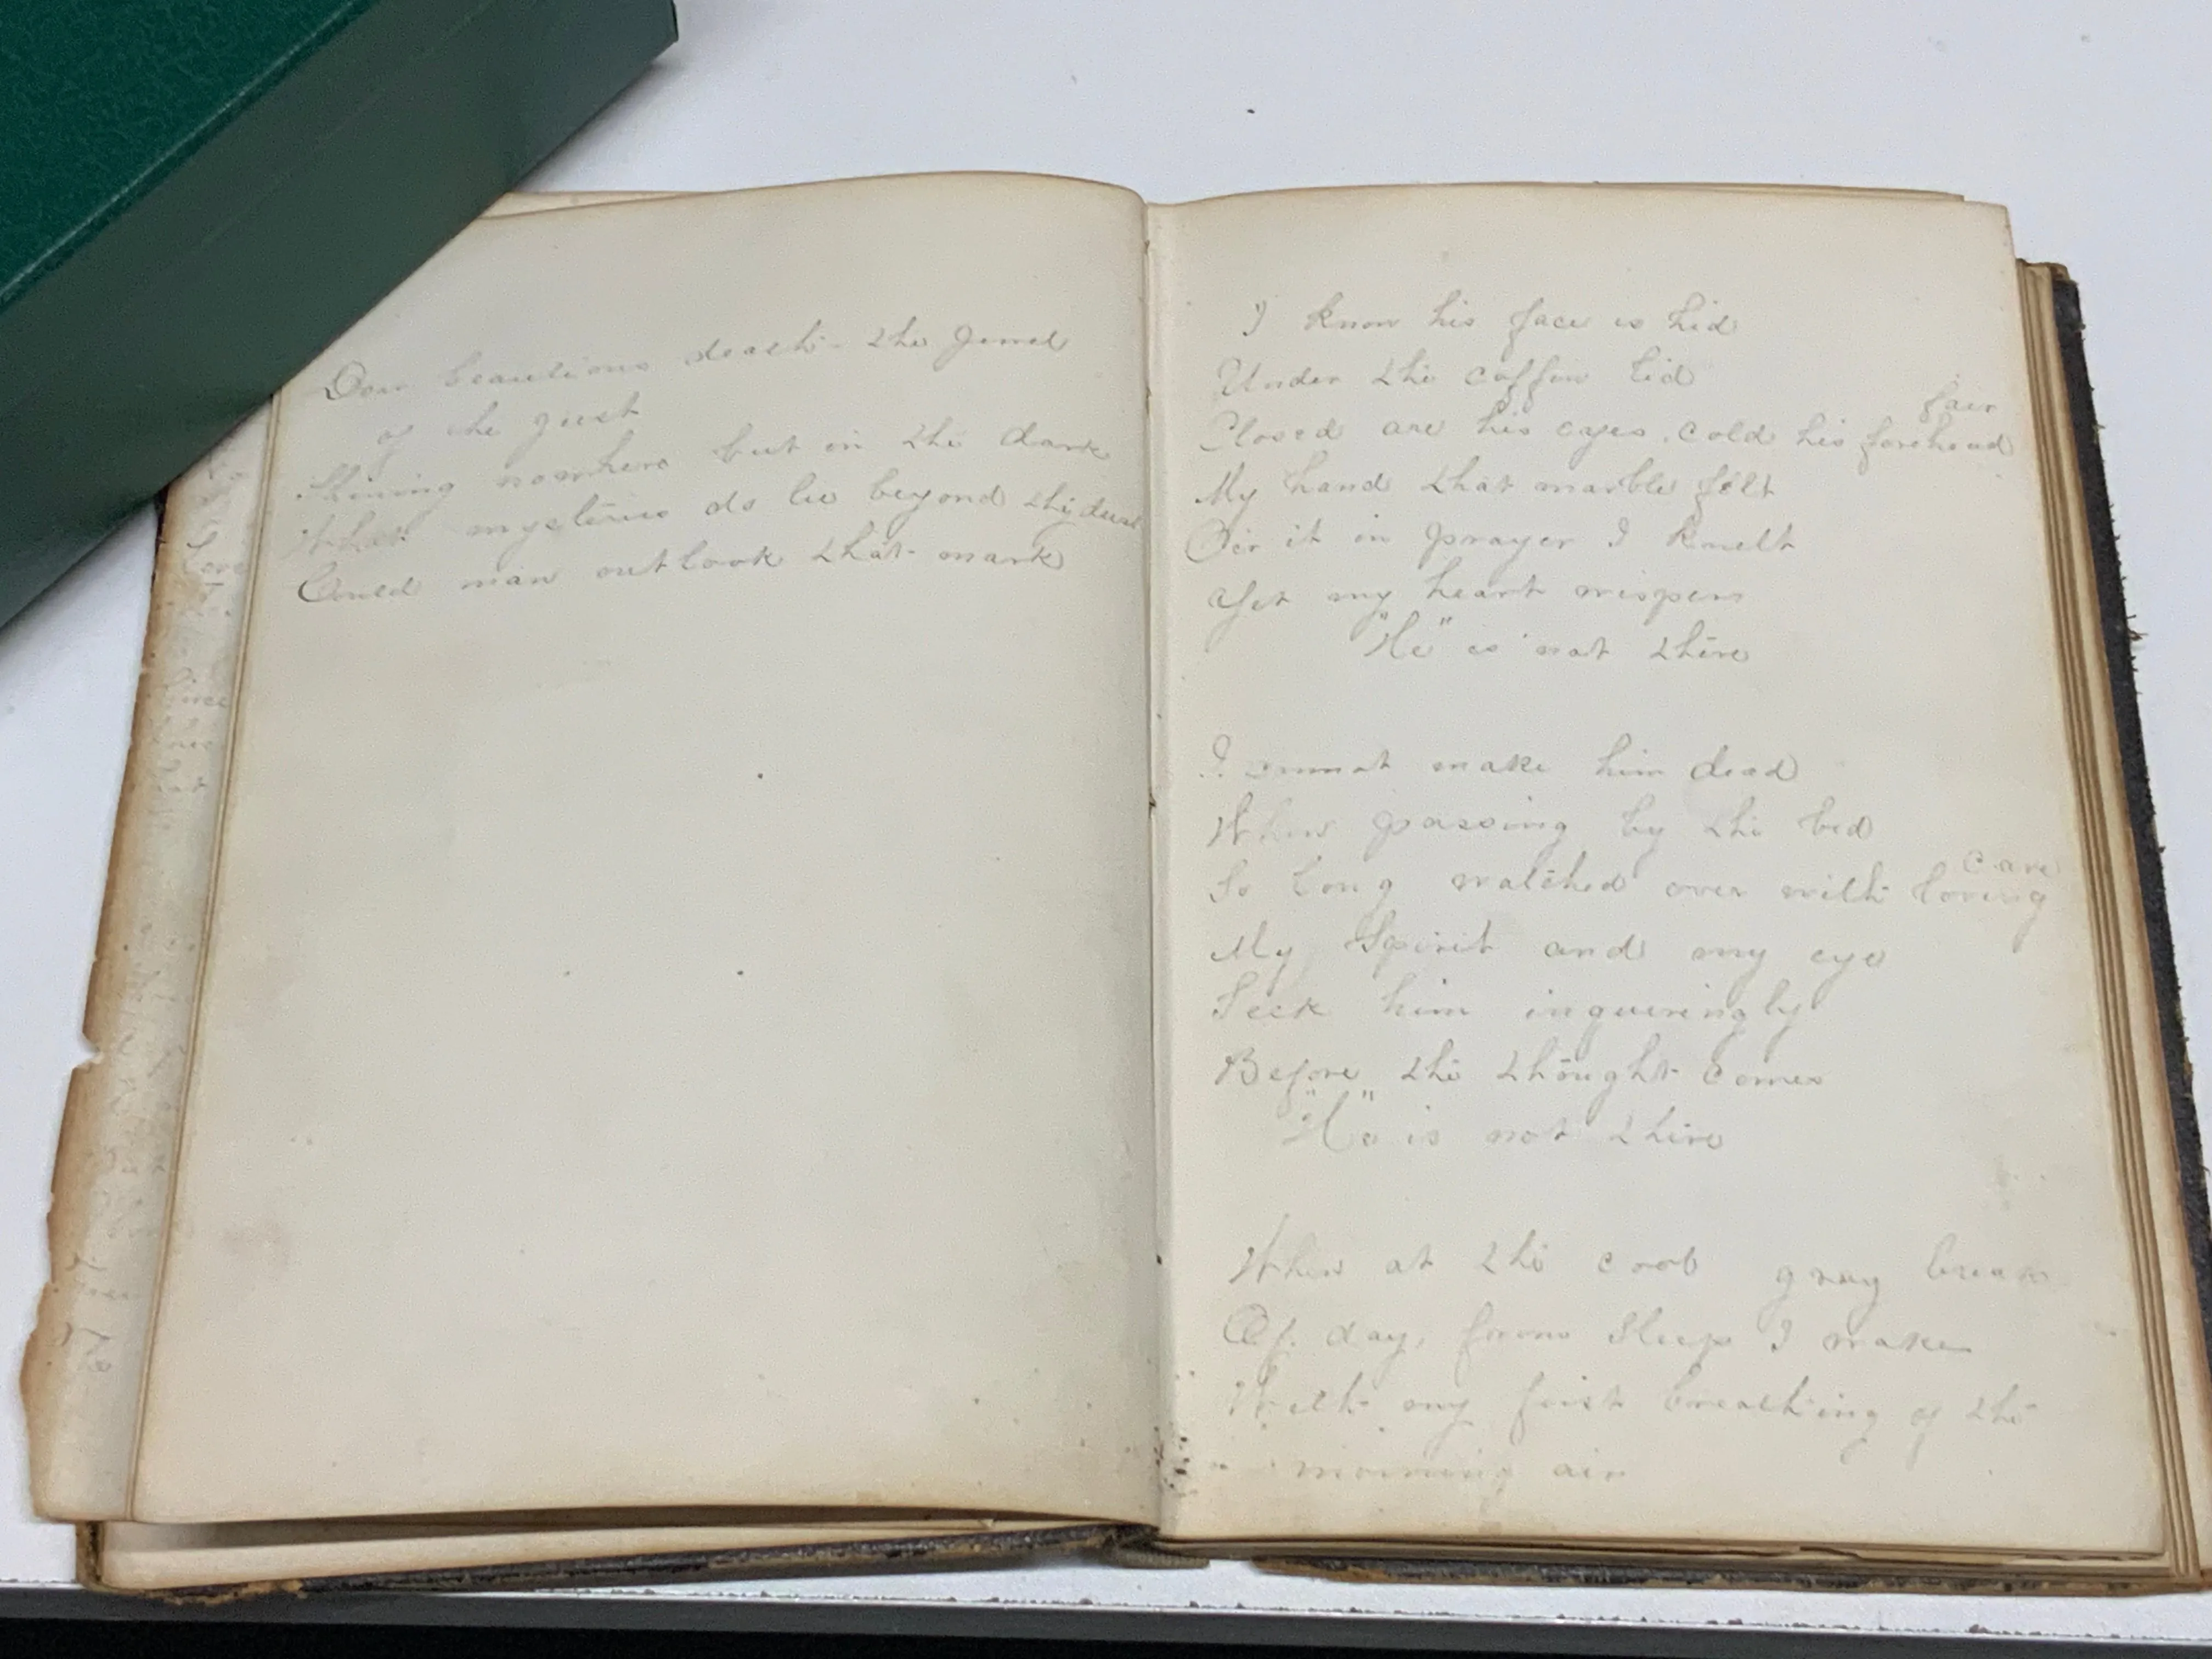 Dear beautious death - the Jewel
of the just
Shining nowhere but in the dark
What mysteries do lie beyond thy dust
Could man outlook that mark
I know his face is hid
Under the coffin lid
Closed are his eyes. cold his forehead fair
My hand that marble felt
O'er it in prayer I knelt
Yet my heart wispers
"He" is not there
I cannot make him dead
When passing by the bed
So long watched over with loving care
My Spirit and my eye
Seek him inqueringly
Before the thought comes
"He" is not there
When at the cool gray break
Of day, from Sleep I wake
With my first breathing of the
morning air